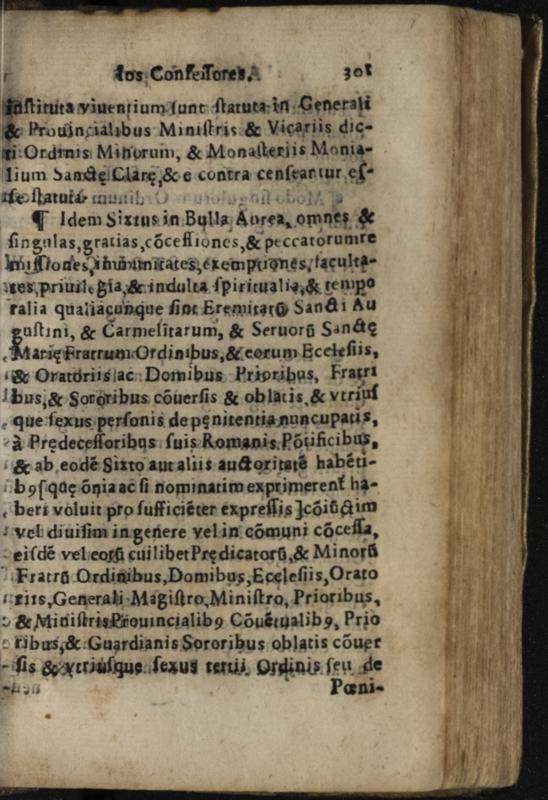 los Confessores. 301
instituta viuentium sunt statuta in Generali
& Prouincialibus Ministris & Vicariis dic-
ti Ordinis Minorum, & Monasteriis Monia-
lium Sanctę Clarę, & e contra censeantur es-
se statuta.
¶ Idem Sixtus in Bulla Aurea, omnes &
singulas, gratias, cōcessiones, & peccatorum re
missiones, immunitates, exemptiones, faculta-
tes, priuilegia, & indulta spiritualia, & tempo
ralia qualiacunque sint Eremitarū Sancti Au
gustini, & Carmelitarum, & Seruorū Sanctę
Marię Fratrum Ordinibus, & eorum Ecclesiis,
& Oratoriis ac Domibus Prioribus, Fratri
bus, & Sororibus cōuersis & oblatis, & vtrius
que sexus personis de pęnitentia nuncupatis,
à Prędecessoribus suis Romanis Pōtificibus,
& ab eodē Sixto aut aliis auctoritatē habēti-
b9[quę ōnia ac si nominatim exprimerent̄ ha-
beri voluit pro sufficiēter expressis]cōiūctim
vel diuisim in genere vel in cōmuni cōcessa,
eisdē vel eorū cuilibet Prędicatorū, & Minorū
Fratrū Ordinibus, Domibus, Ecclesiis, Orato
riis, Generali Magistro, Ministro, Prioribus,
& Ministris Prouincialib9 Cōuētualib9, Prio
ribus, & Guardianis Sororibus oblatis cōuer
sis & vtriusque sexus tertii Ordinis seu de
Pœni-